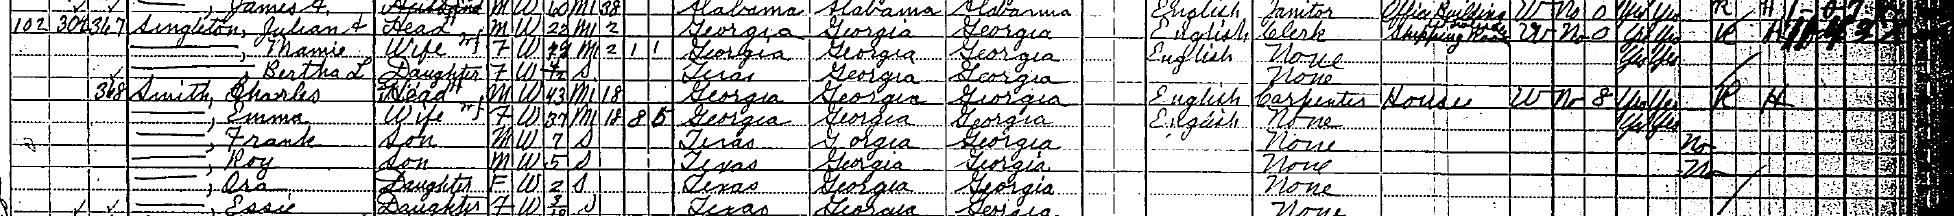 James F. Husband M W 60 M1 38 Alabama Alabama Alabama English Janitor Office Building W No 0 Yes Yes R H
102 367 Singleton, Julian Head M W 22 M1 2 Georgia Georgia Georgia English Clerk W No 0 Yes Yes R H
——, Mamie Wife F W M1 2 1 1 Georgia Georgia Georgia English None Yes Yes
——, Bertha L Daughter F W S Texas Georgia Georgia None
368 Smith, Charles Head M W 43 M1 18 Georgia Georgia Georgia English Carpenter House W No 8 Yes Yes R H
——, Emma Wife F W 37 M1 18 8 5 Georgia Georgia Georgia English None Yes Yes
——, Frank Son M W 7 S Texas Georgia Georgia None No
——, Roy Son M W 5 S Texas Georgia Georgia None No
——, Ora Daughter F W 2 S Texas Georgia Georgia None
——, Essie Daughter F W 3/12 S Texas Georgia Georgia None